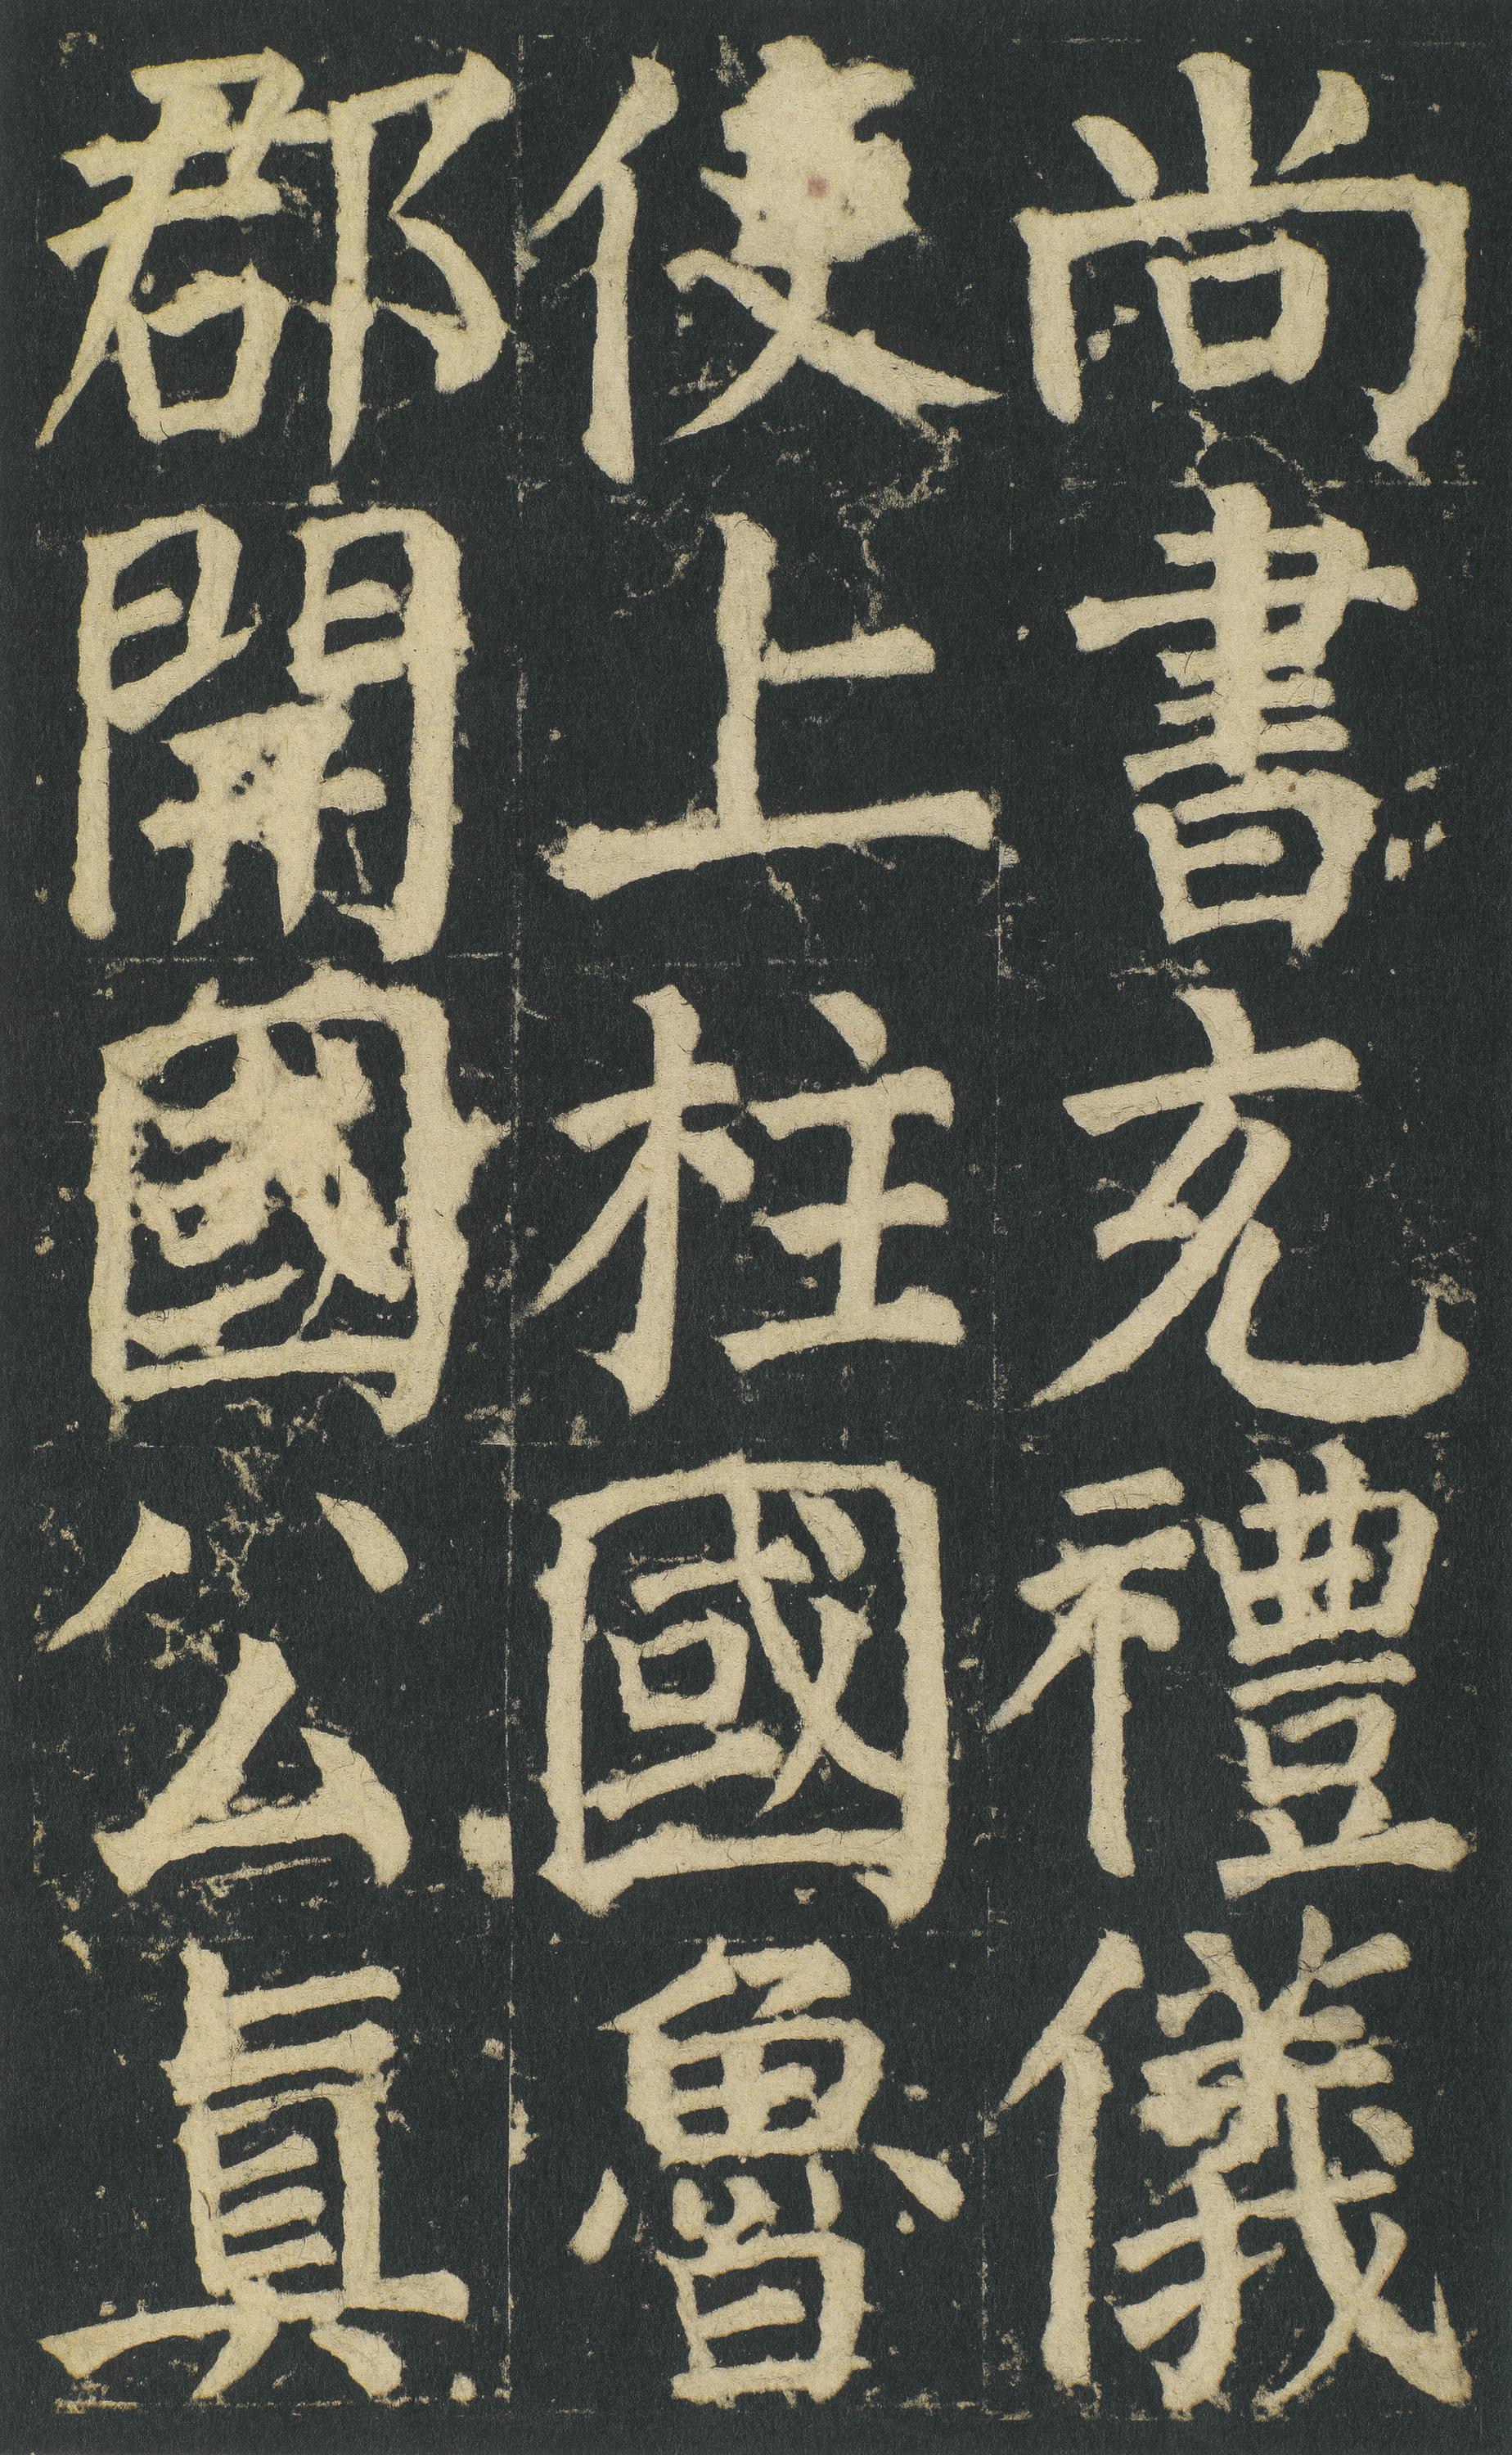 尚書充禮儀
使上柱國魯
郡開國公真